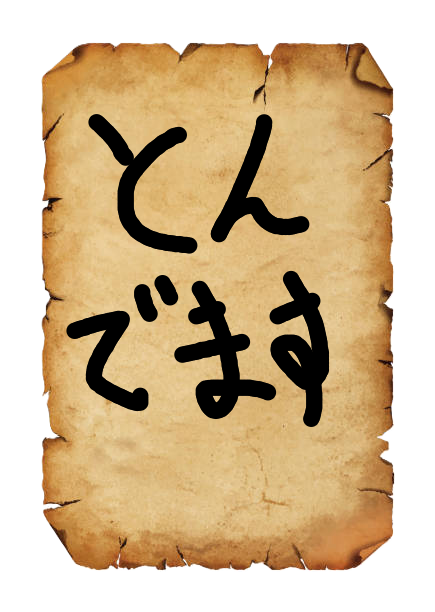 とん
でます